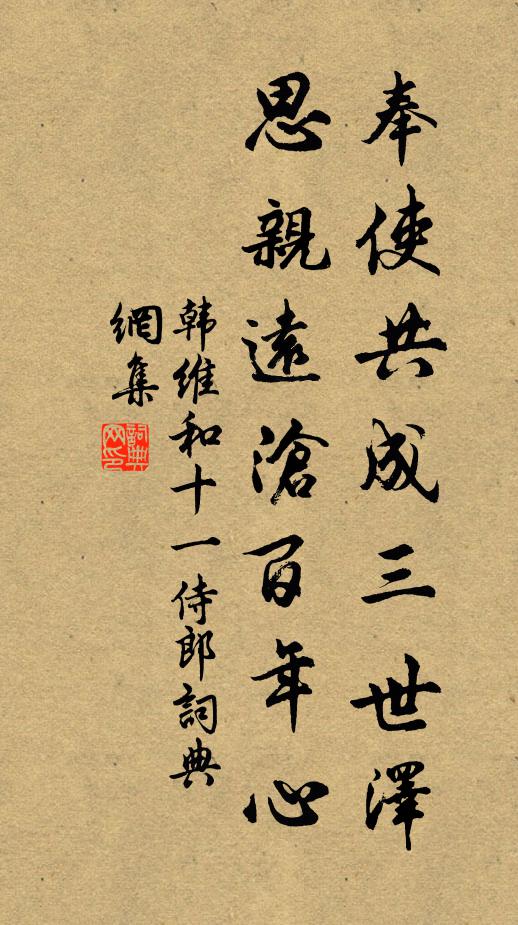 奉使共成三世澤
思親遠滄百年心
韩維和十一侍郎詞典
網集
詞典
网印